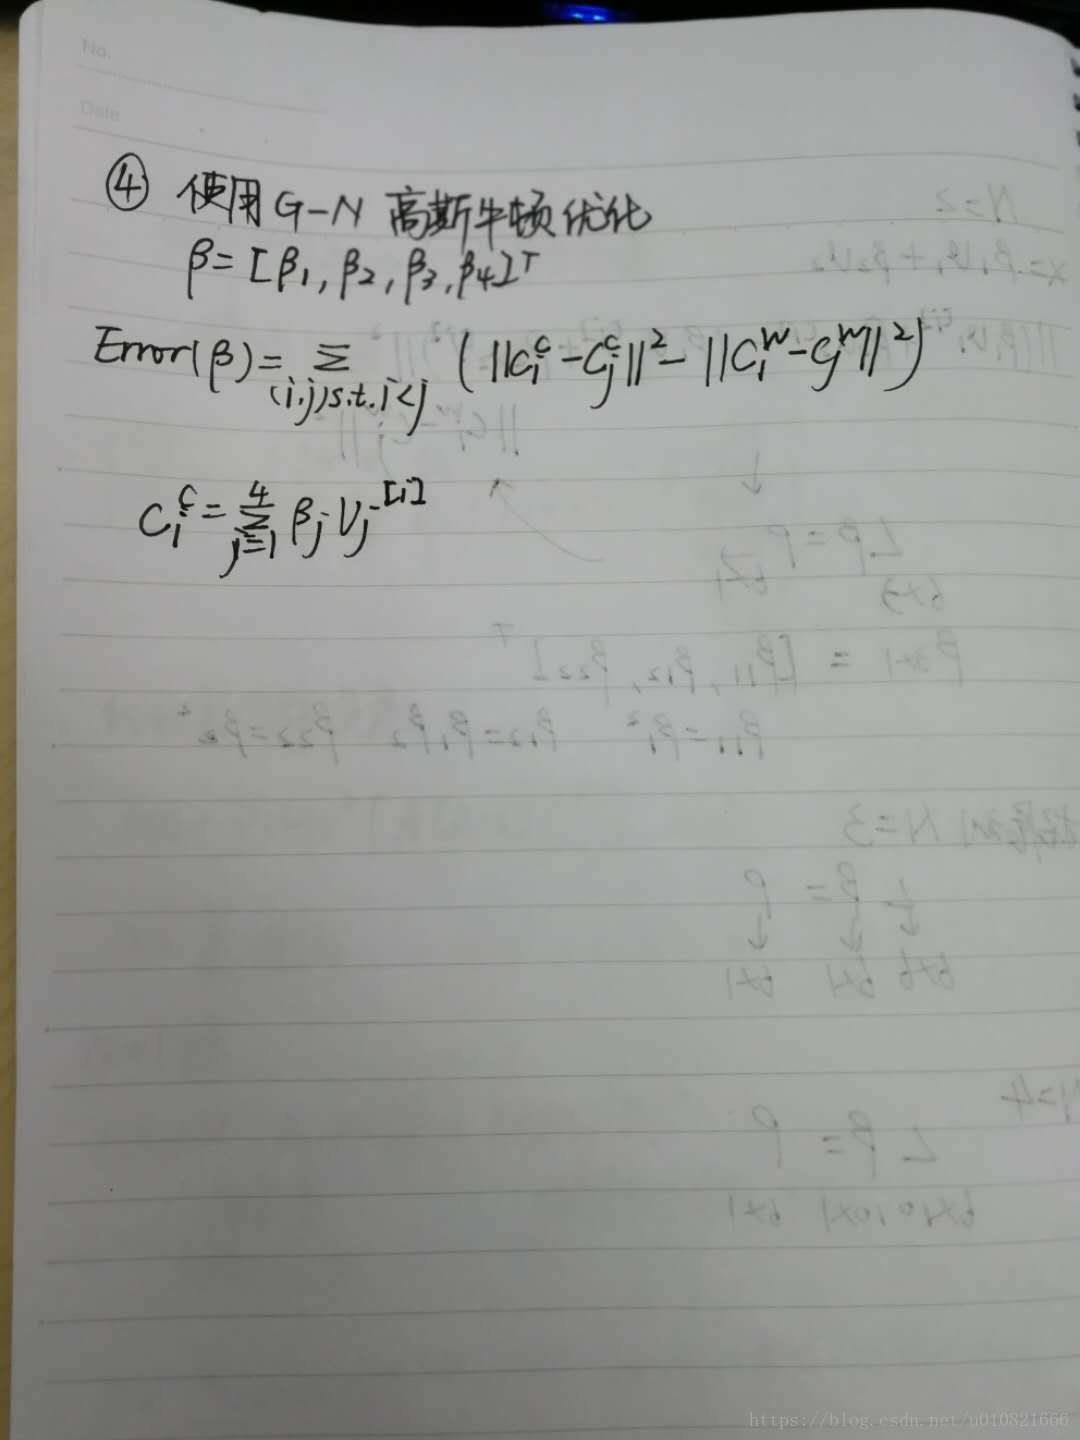 No.
Date
④ 使用G-N 高斯牛顿优化
β=[β1, β2, β3, β4]ᵀ
Error(β)= Σ (i.j)s.t.i<j (||Ciᶜ-Cjᶜ||²-||Ciʷ-Cjʷ||²)
Ciᶜ= Σ j=1 4 βj Vj[i]
https://blog.csdn.net/u010821666